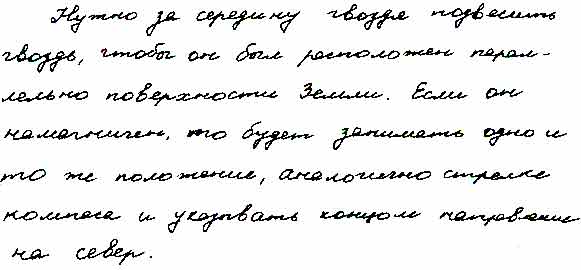 Нужно за середину гвоздя подвесить
гвоздь, чтобы он был расположен парал-
лельно поверхности Земли. Если он
намагничен, то будет занимать одно и
то же положение, аналогично стрелке
компаса и указывать концом направление
на север.